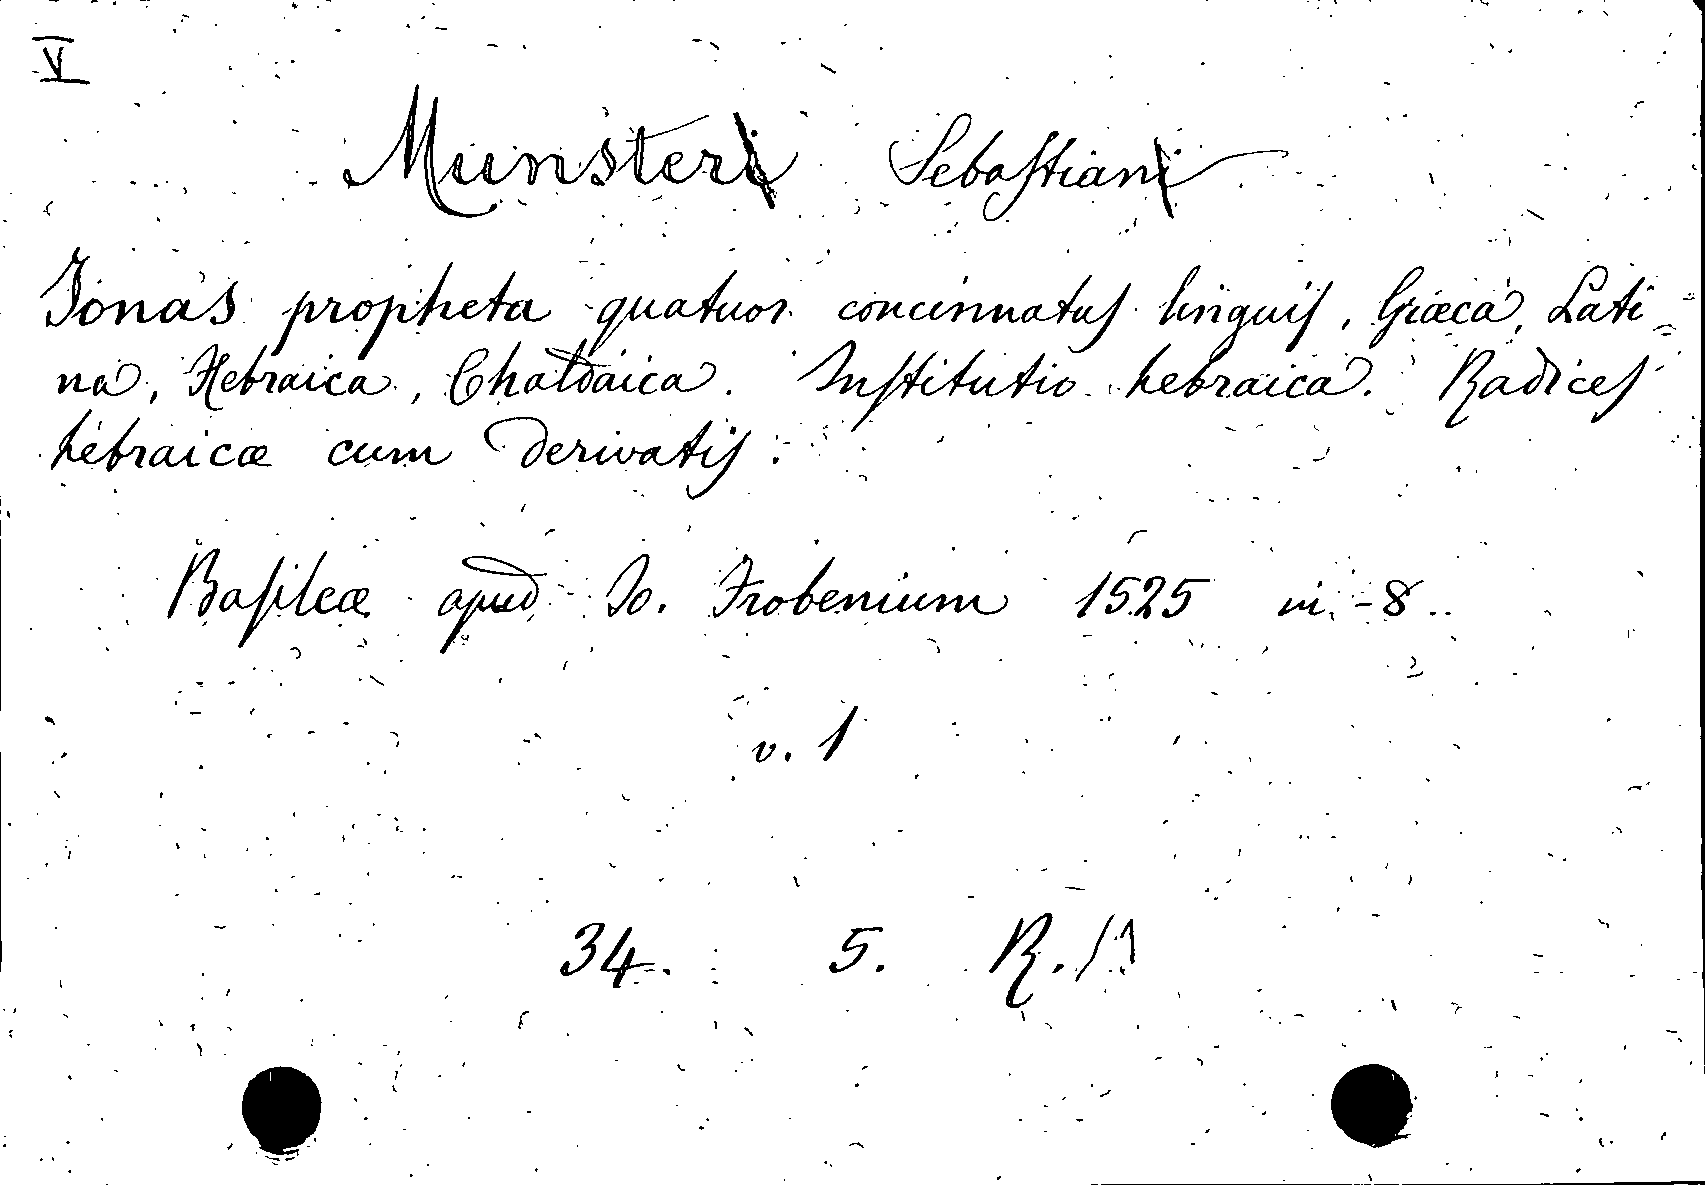 V
Munster Sebastian
Jonas propheta quatuor concinnatus linguis, Græca, Lati=
na, Hebraica, Chaldaica. Institutio hebraica. Radices
hebraicæ cum derivatis.
Basileæ apud Jo. Frobenium 1525 in-8.
v. 1
34. 5. R.